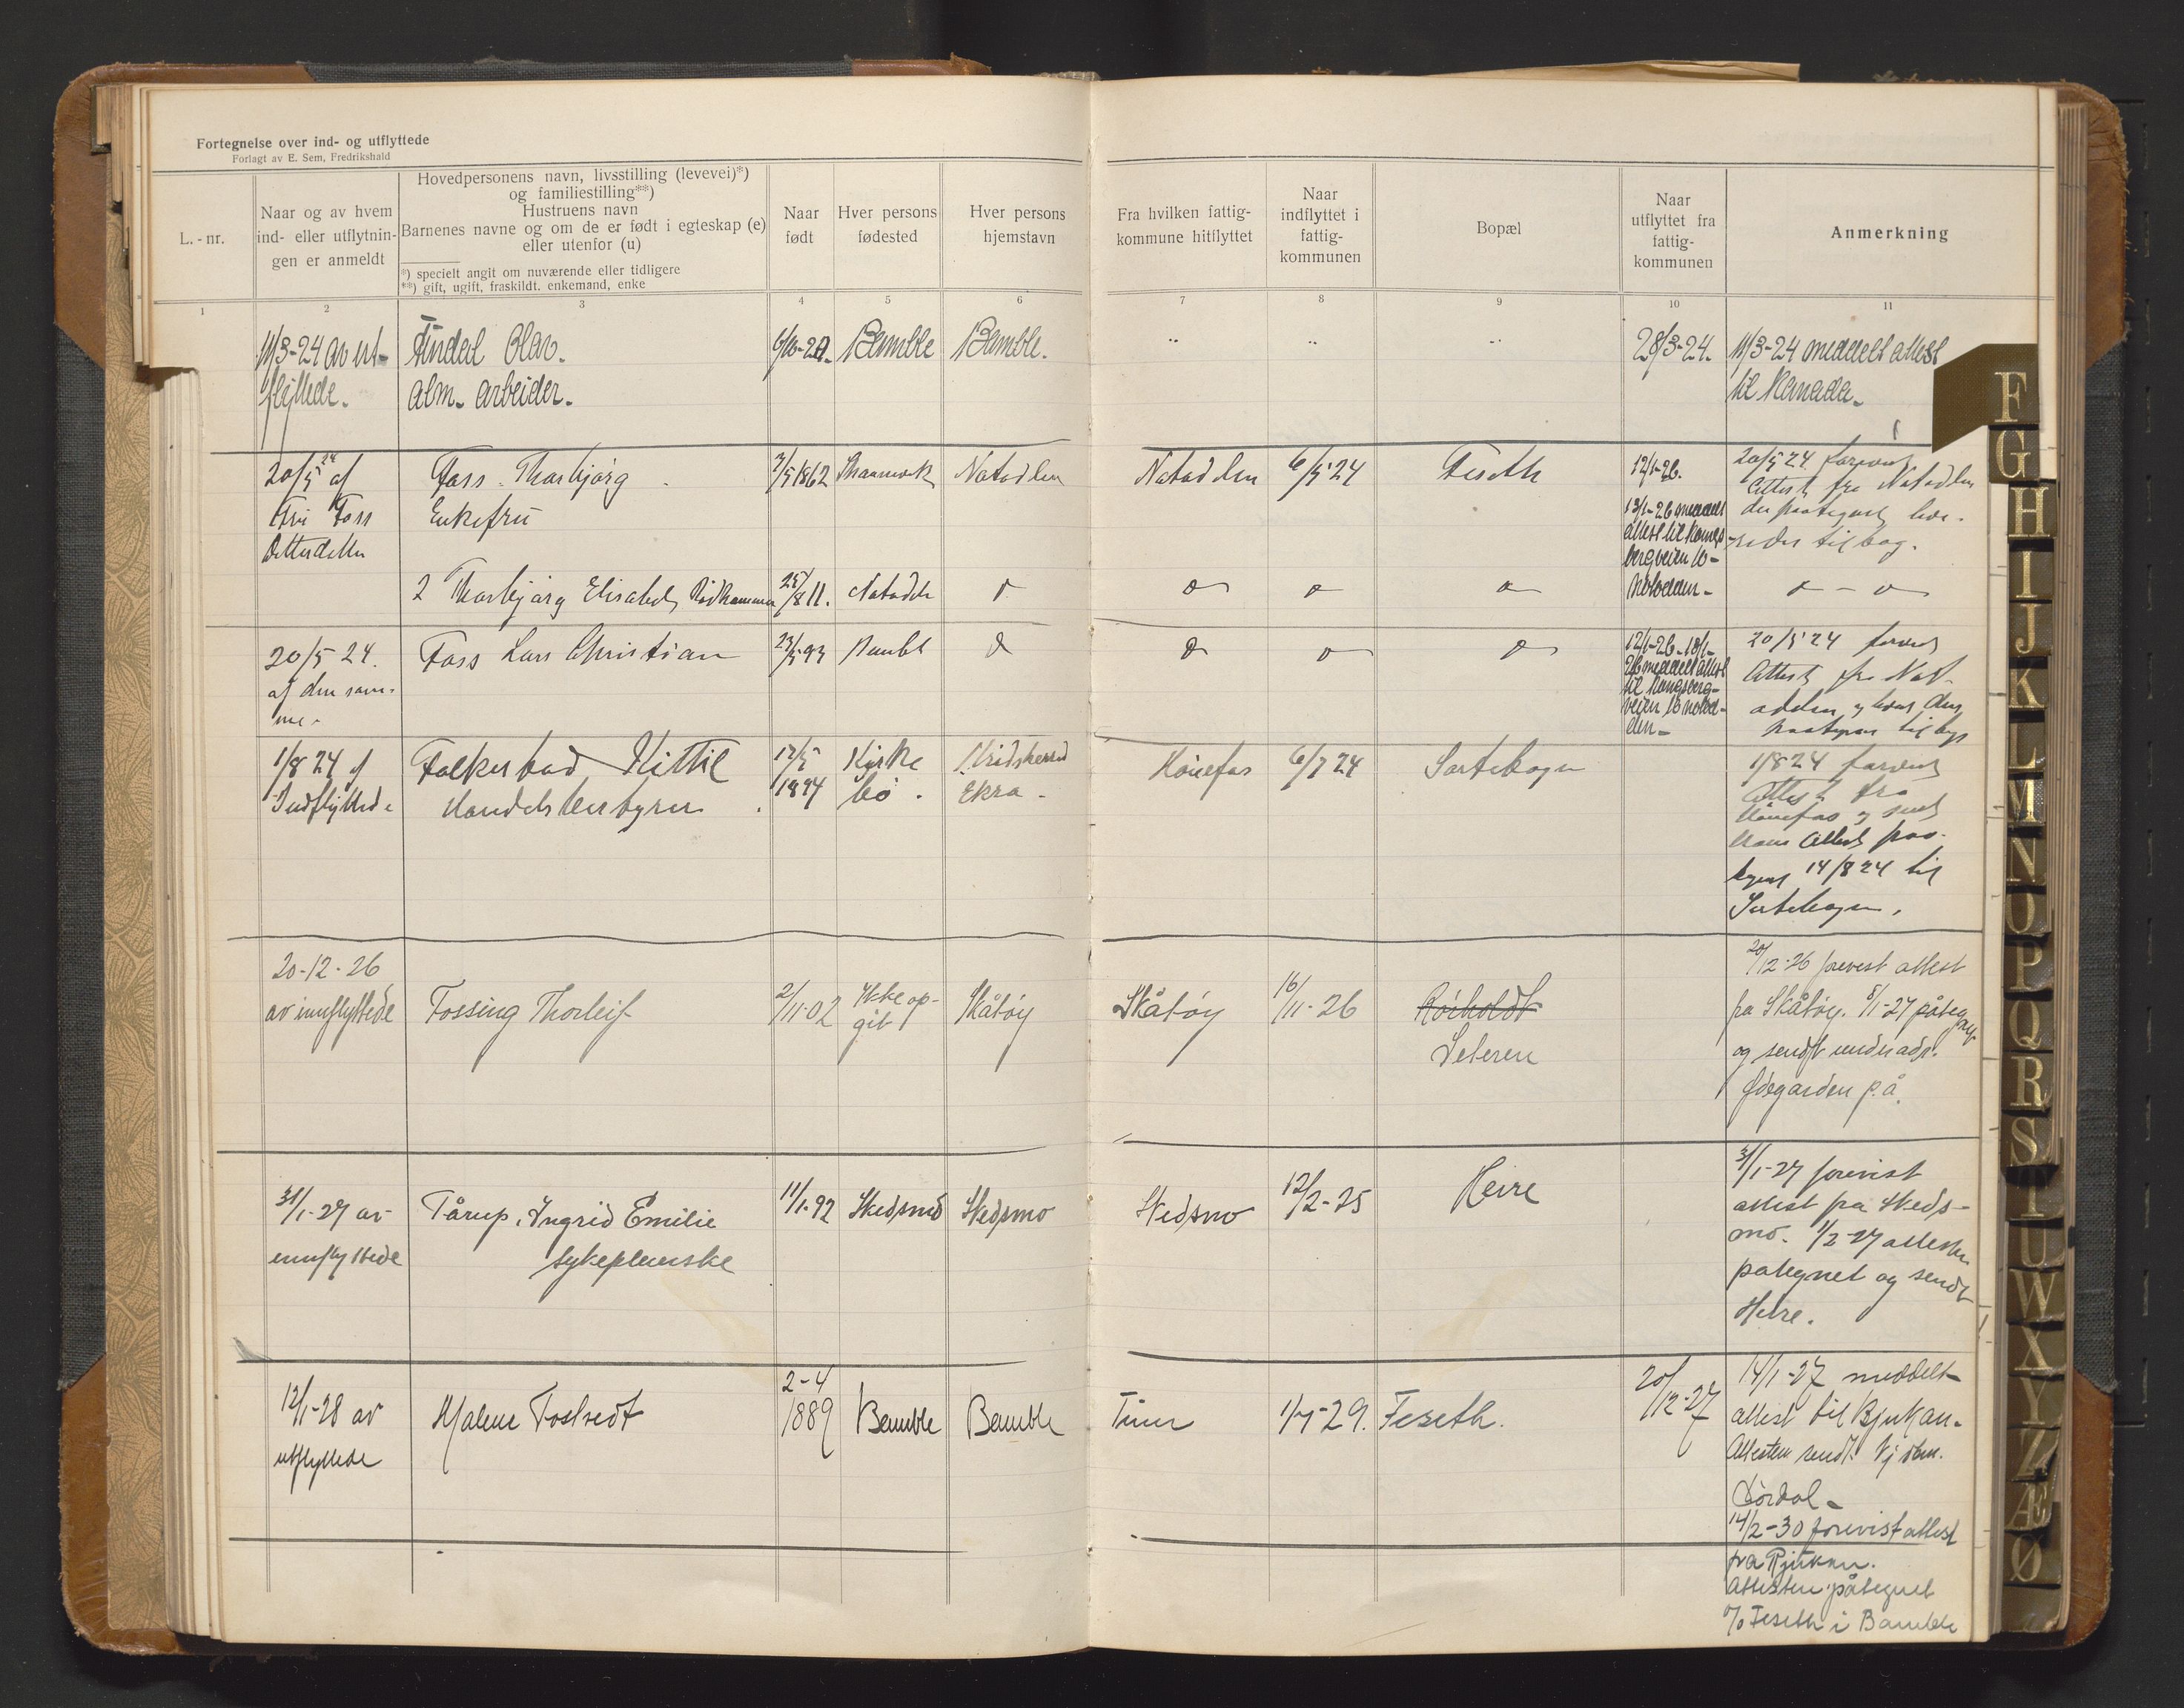 Fortegnelse over ind- og utflyttede
Forlagt av E. Sem, Fredrikshald
L.-nr.
Naar og av hvem
ind- eller utflytnin-
gen er anmeldt
Hovedpersonens navn, livsstilling (levevei)*)
og familiestilling**)
Hustruens navn
Barnenes navne og om de er født i egteskap (e)
eller utenfor (u)
*) specielt angit om nuværende eller tidligere
**) gift, ugift, fraskildt, enkemand, enke
Naar
født
Hver persons
fødested
Hver persons
hjemstavn
Fra hvilken fattig-
kommune hitflyttet
Naar
indflyttet i
fattig-
kommunen
Bopæl
Naar
utflyttet fra
fattig-
kommunen
Anmerkning
1 2 3 4 5 6 7 8 9 10 11
11/3-24 av ut-
flyttede.
Findal Olav.
alm. arbeider.
Bamble
Bamble.
" " "
28/3-24.
11/3-24 meddelt attest
til Kanada.
20/5 24 af
Fru Foss
Foss Thorbjørg
Enkefru
1862
Notodden
Notodden
6/5 24
Feseth
12/1-26.
13/1-26 meddelt
attest til Kongs-
bergveien 10-
Notodden-
20/5 24 forevist
Attest fra Notodden
2 Thorbjørg Elisabeth
25/8 11.
Notodden
20/5 24.
af den sam-
me.
Foss Lars Christian
Bamble
12/1-26. 13/1-
26 meddelt attest
til Kongsberg-
veien 10 Notod-
den-
20/5 24 forevist
Attest fra Not-
odden
1/8 24 af
Indflyttede
Kittil
12/5
1894
Kirke
bø.
Hønefos
6/7 24
Sortebogen
1/8 24 forevist
Attest fra
Hønefos og
hans Attest paa-
tegnet 14/8 24 til
Sortebogen.
20-12-26
av innflyttede
Fossing Thorleif
2/11-02
Ikke op-
git
Skåtøy
Skåtøy
16/11-26
Rørholdt
Seteren
20/12-26 forevist attest
fra Skåtøy. 5/1-27 påtegnet
og sendt under adr.
Ødegarden p.å.
31/1-27 av
innflyttede
Fårup, Ingrid Emilie
sykepleierske
11/1-92
Skedsmo
Skedsmo
Skedsmo
12/2-25
Heire
31/1-27 forevist
attest fra Skeds-
mo. 1/2-27 attesten
påtegnet og sendt
Heire.
12/1-28 av
utflyttede
Malene Fostvedt
2-4
1889
Bamble
Bamble
Tinn
1/7-29.
Feseth.
20/12-27
14/1-27 meddelt
attest til Rjukan.
Attesten sendt
Dördal-
14/2-30 forevist attest
fra Rjukan.
Attesten påtegnet
% Feseth i Bamble
F
G
H
I
J
K
L
M
N
O
P
Q
R
S
T
U
W
X
Y
Z
Æ
Ø